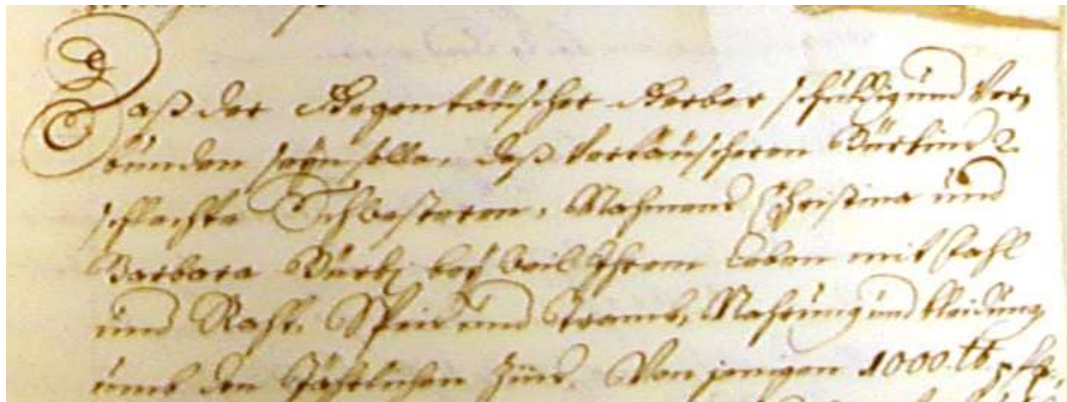 Daß der Gegentäüscher Gerber schuldig und ver,
bunden seÿn solle, deß Vertäüscheren Bürkins 2.
schlechte Schwesteren, Nahmens Christina und
Barbara Bürkj beÿ weil Ihrem Leben mit
und Rast, Speis und Tranck, Nahrung und Kleidung
umb den Jährlichen Zins. Von jenigen 1000 lb pfg.